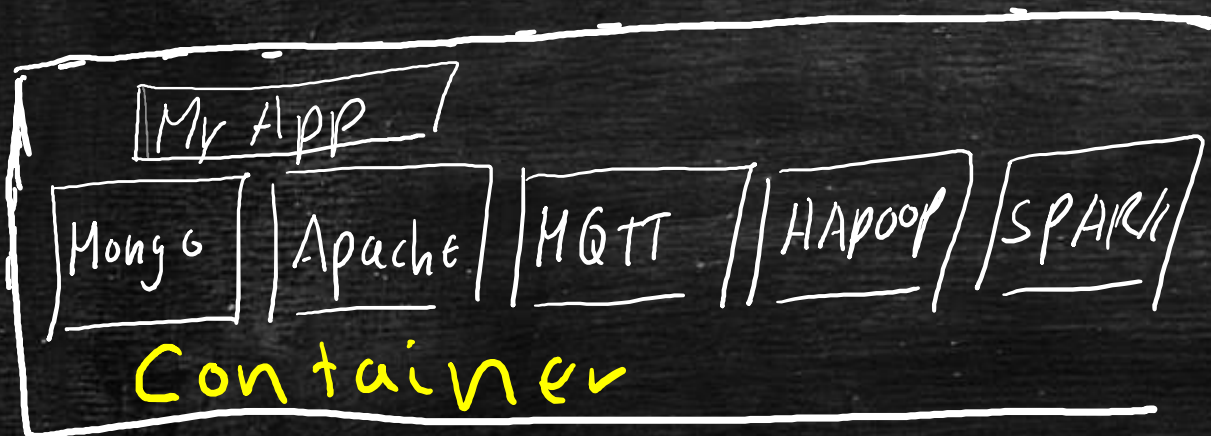 My App
Mongo Apache MQTT HApoop SPARK
Container